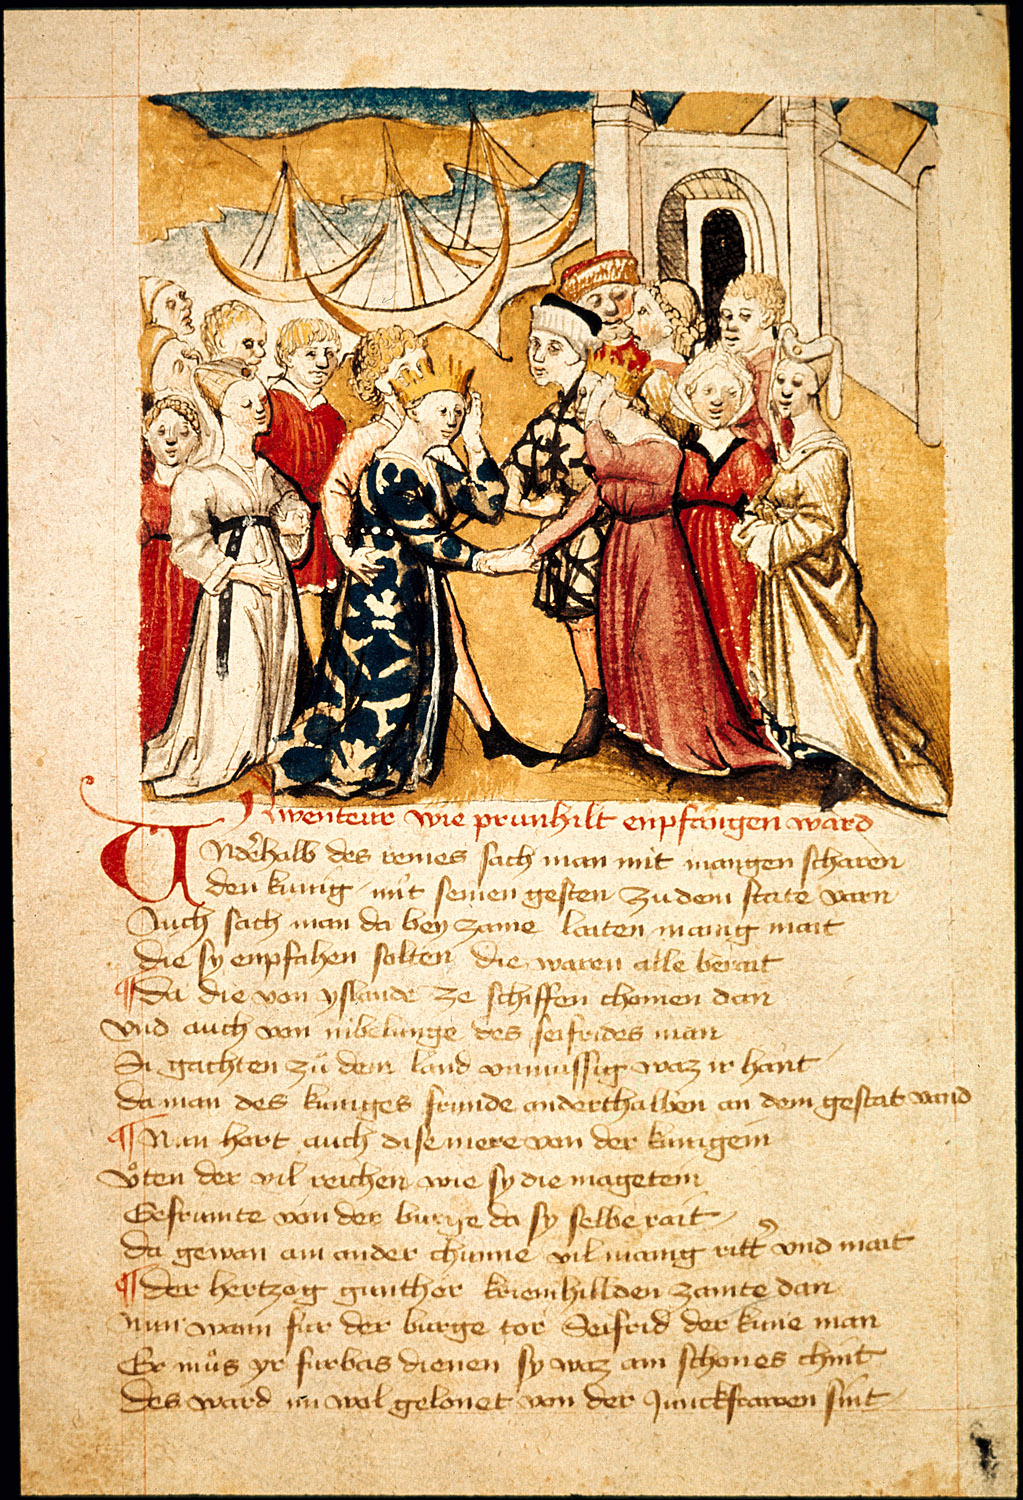 Awenteur wie prunhilt enpfangen ward
Anderhalb des reines sach man mit mangen scharen
den kunig mit seinen gesten zu dem state varn
Auch sach man da bey zame laiten manig mait
die sy enpfahen solten die waren alle berait
¶ Da die von yslande ze schiffen chomen dan
vnd auch von nibelunge des seifrides man
Si gachten zu dem land vnmussig waz ir hant
da man des kuniges frunde anderthalben an dem gestat vand
¶ Nun hort auch dise mere von der kunigein
vten der vil reichen wie sy die magetein
Gefrumte von der burge da sy selbe rait
da gewan am ander chunne vil manig ritter vnd mait
¶ der hertzog gunther kriemhillden zamte dan
Nun wann fur der burge tor Seifrid der kune man
Er mus yr furbas dienen sy waz am schones chint
des ward im wol gelonet von der Junckfrawen sint